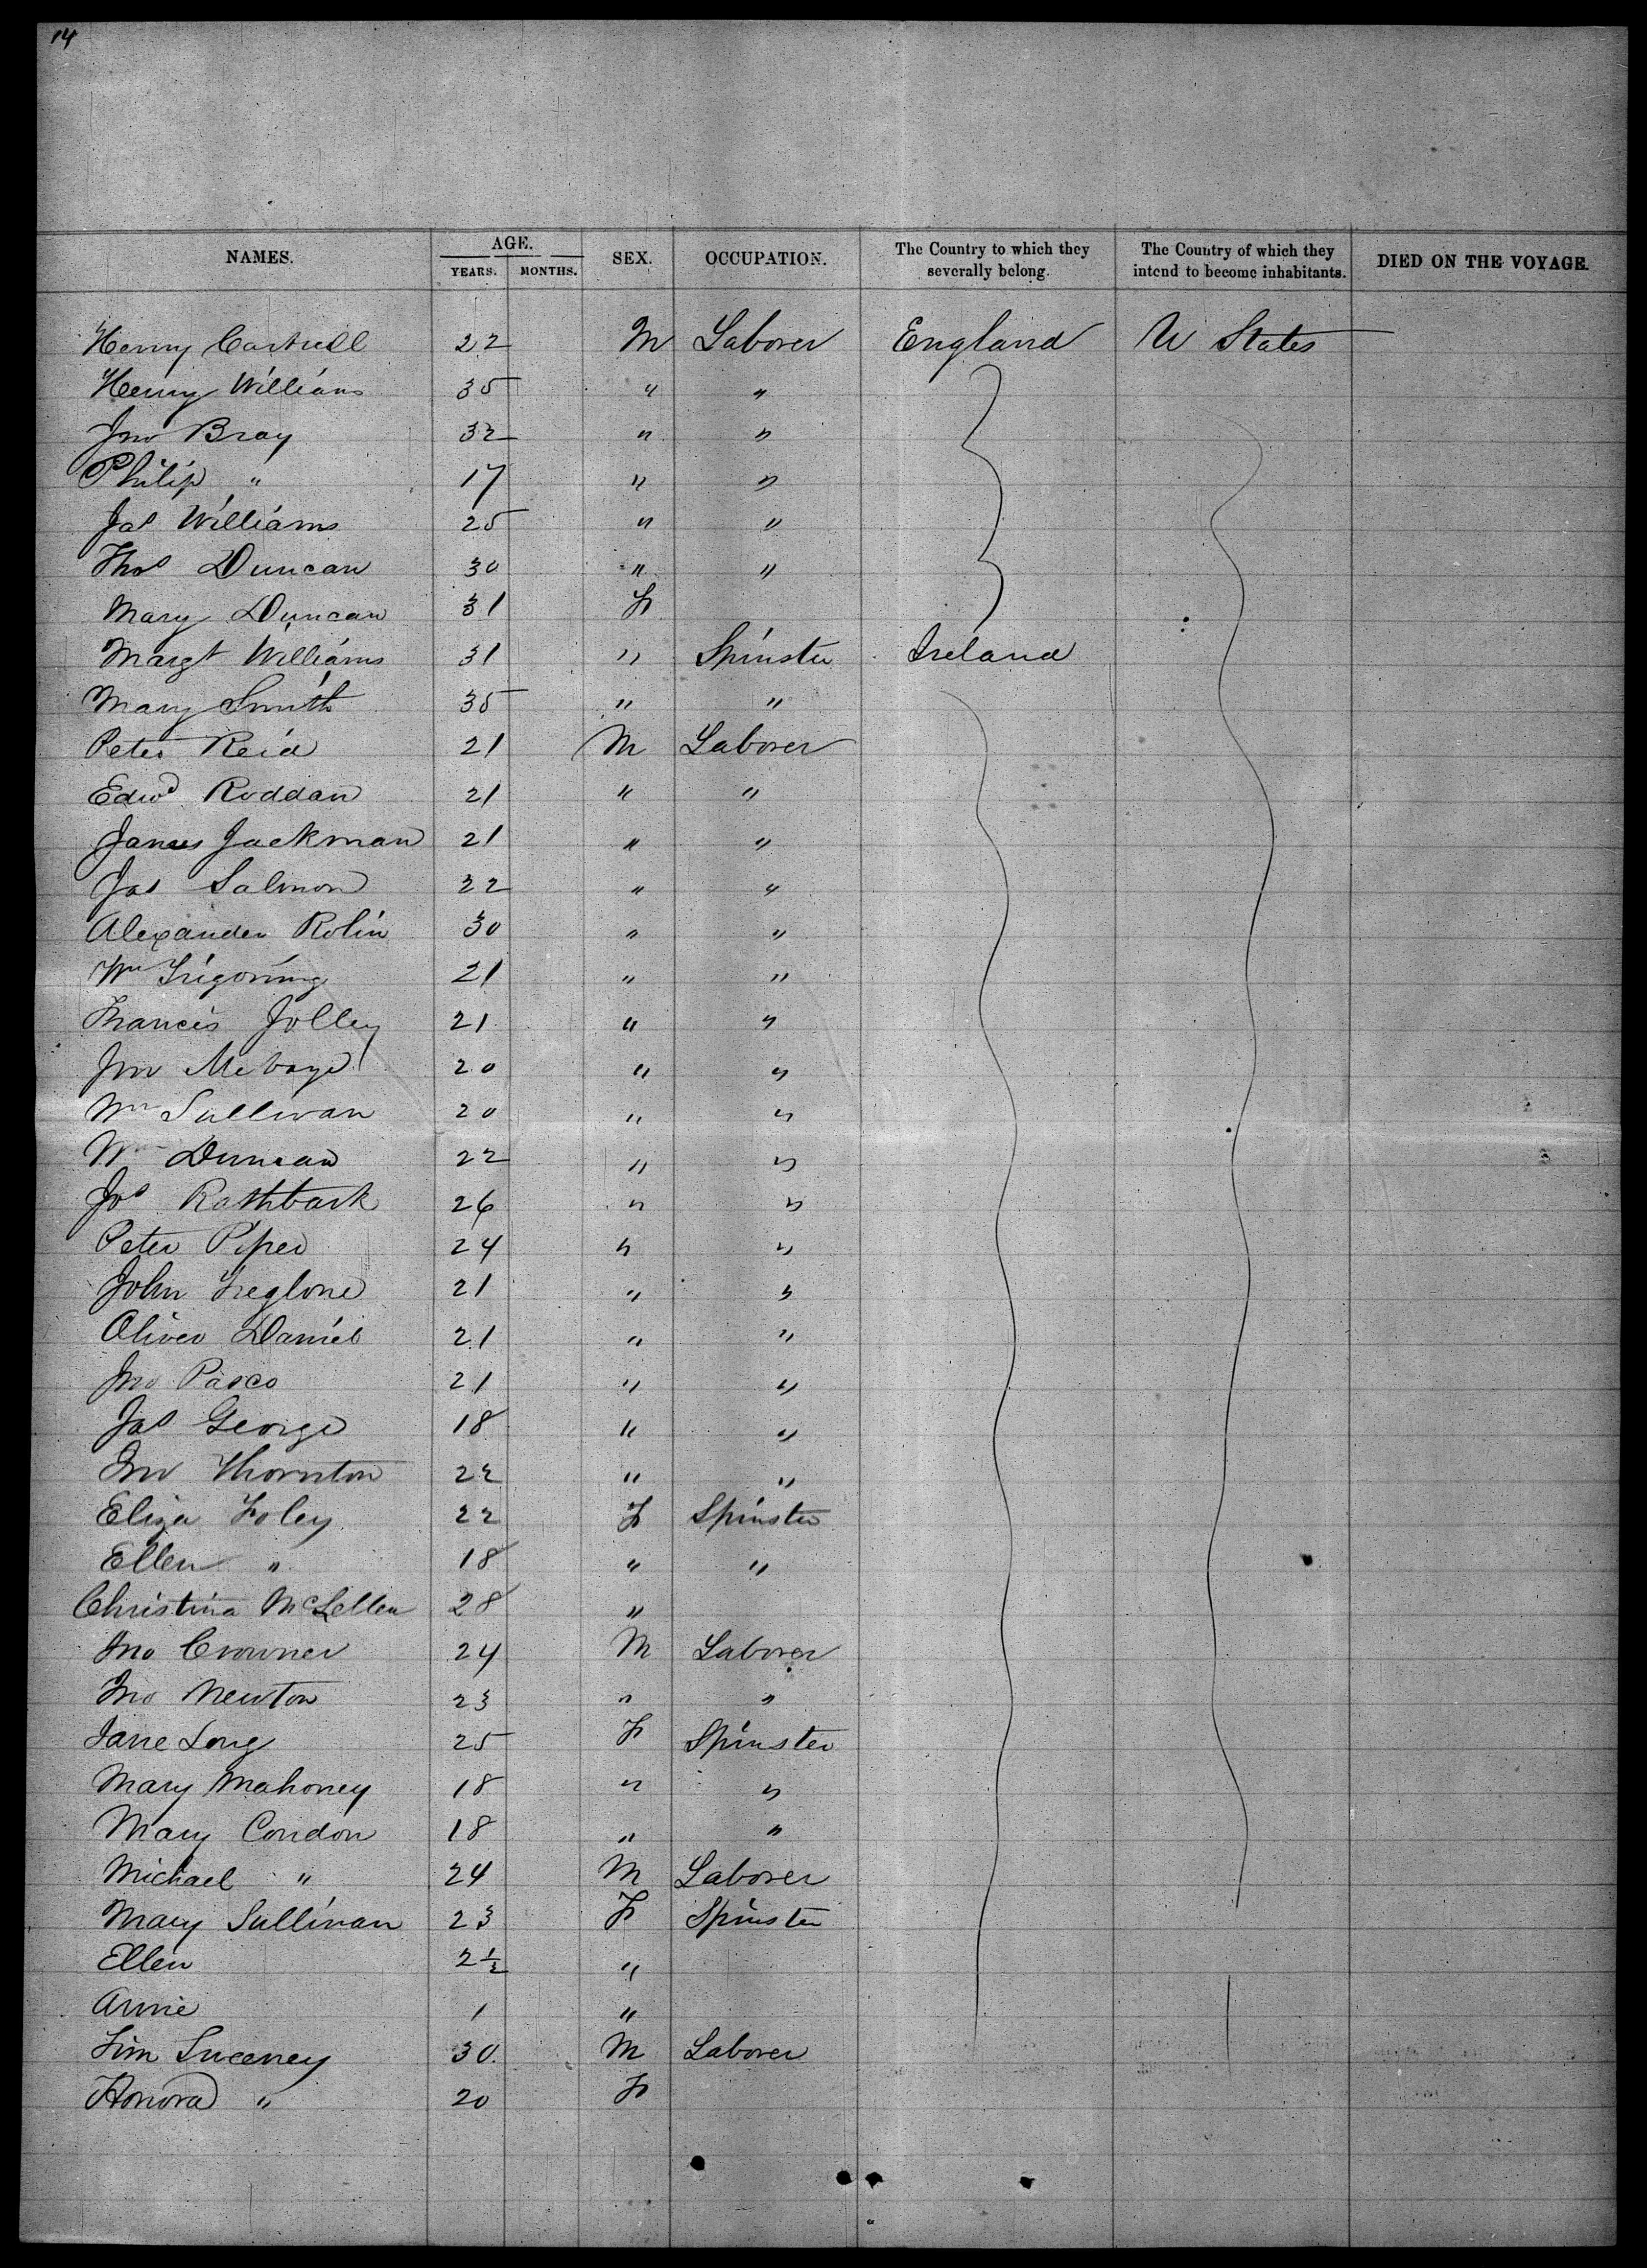 14
NAMES. AGE. YEARS. MONTHS. SEX. OCCUPATION. The Country to which they severally belong. The Country of which they intend to become inhabitants. DIED ON THE VOYAGE.
Henry 22 M Laborer England U States
Henry Williams 35 " "
Jno Bray 32 " "
Philip " 17 " "
Jas Williams 25 " "
Thos Duncan 30 " "
Mary Duncan 31 F
Margt Williams 31 " Spinster Ireland
Mary Smith 35 " "
Peter Reid 21 M Laborer
Edwd Roddan 21 " "
James Jackman 21 " "
Jas Salmon 22 " "
Alexander Rolin 30 " "
Wm 21 " "
Francis Jolley 21 " "
Jno 20 " "
Wm Sullivan 20 " "
Wm Duncan 22 " "
Jos Rathbark 26 " "
Peter Piper 24 " "
John Treglone 21 " "
Oliver Daniel 21 " "
Jno Pasco 21 " "
Jas George 18 " "
Jno Thornton 22 " "
Eliza Foley 22 F Spinster
Ellen " 18 " "
Christina McLellen 28 "
Jno Crowner 24 M Laborer
Jno Newton 23 " "
Jane Long 25 F Spinster
Mary Mahoney 18 " "
Mary Condon 18 " "
Michael " 24 M Laborer
Mary Sullivan 23 F Spinster
Ellen 2½ "
Annie 1 "
Tim Sweeney 30 M Laborer
Honora " 20 F